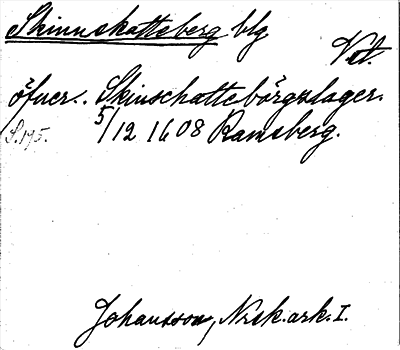 Skinnskatteberg blg
Vst.
öfver.. Skinschattebörgzlager.
S. 195. 5/12 1608 Ramsberg.
Johansson, Norsk.ark. I.